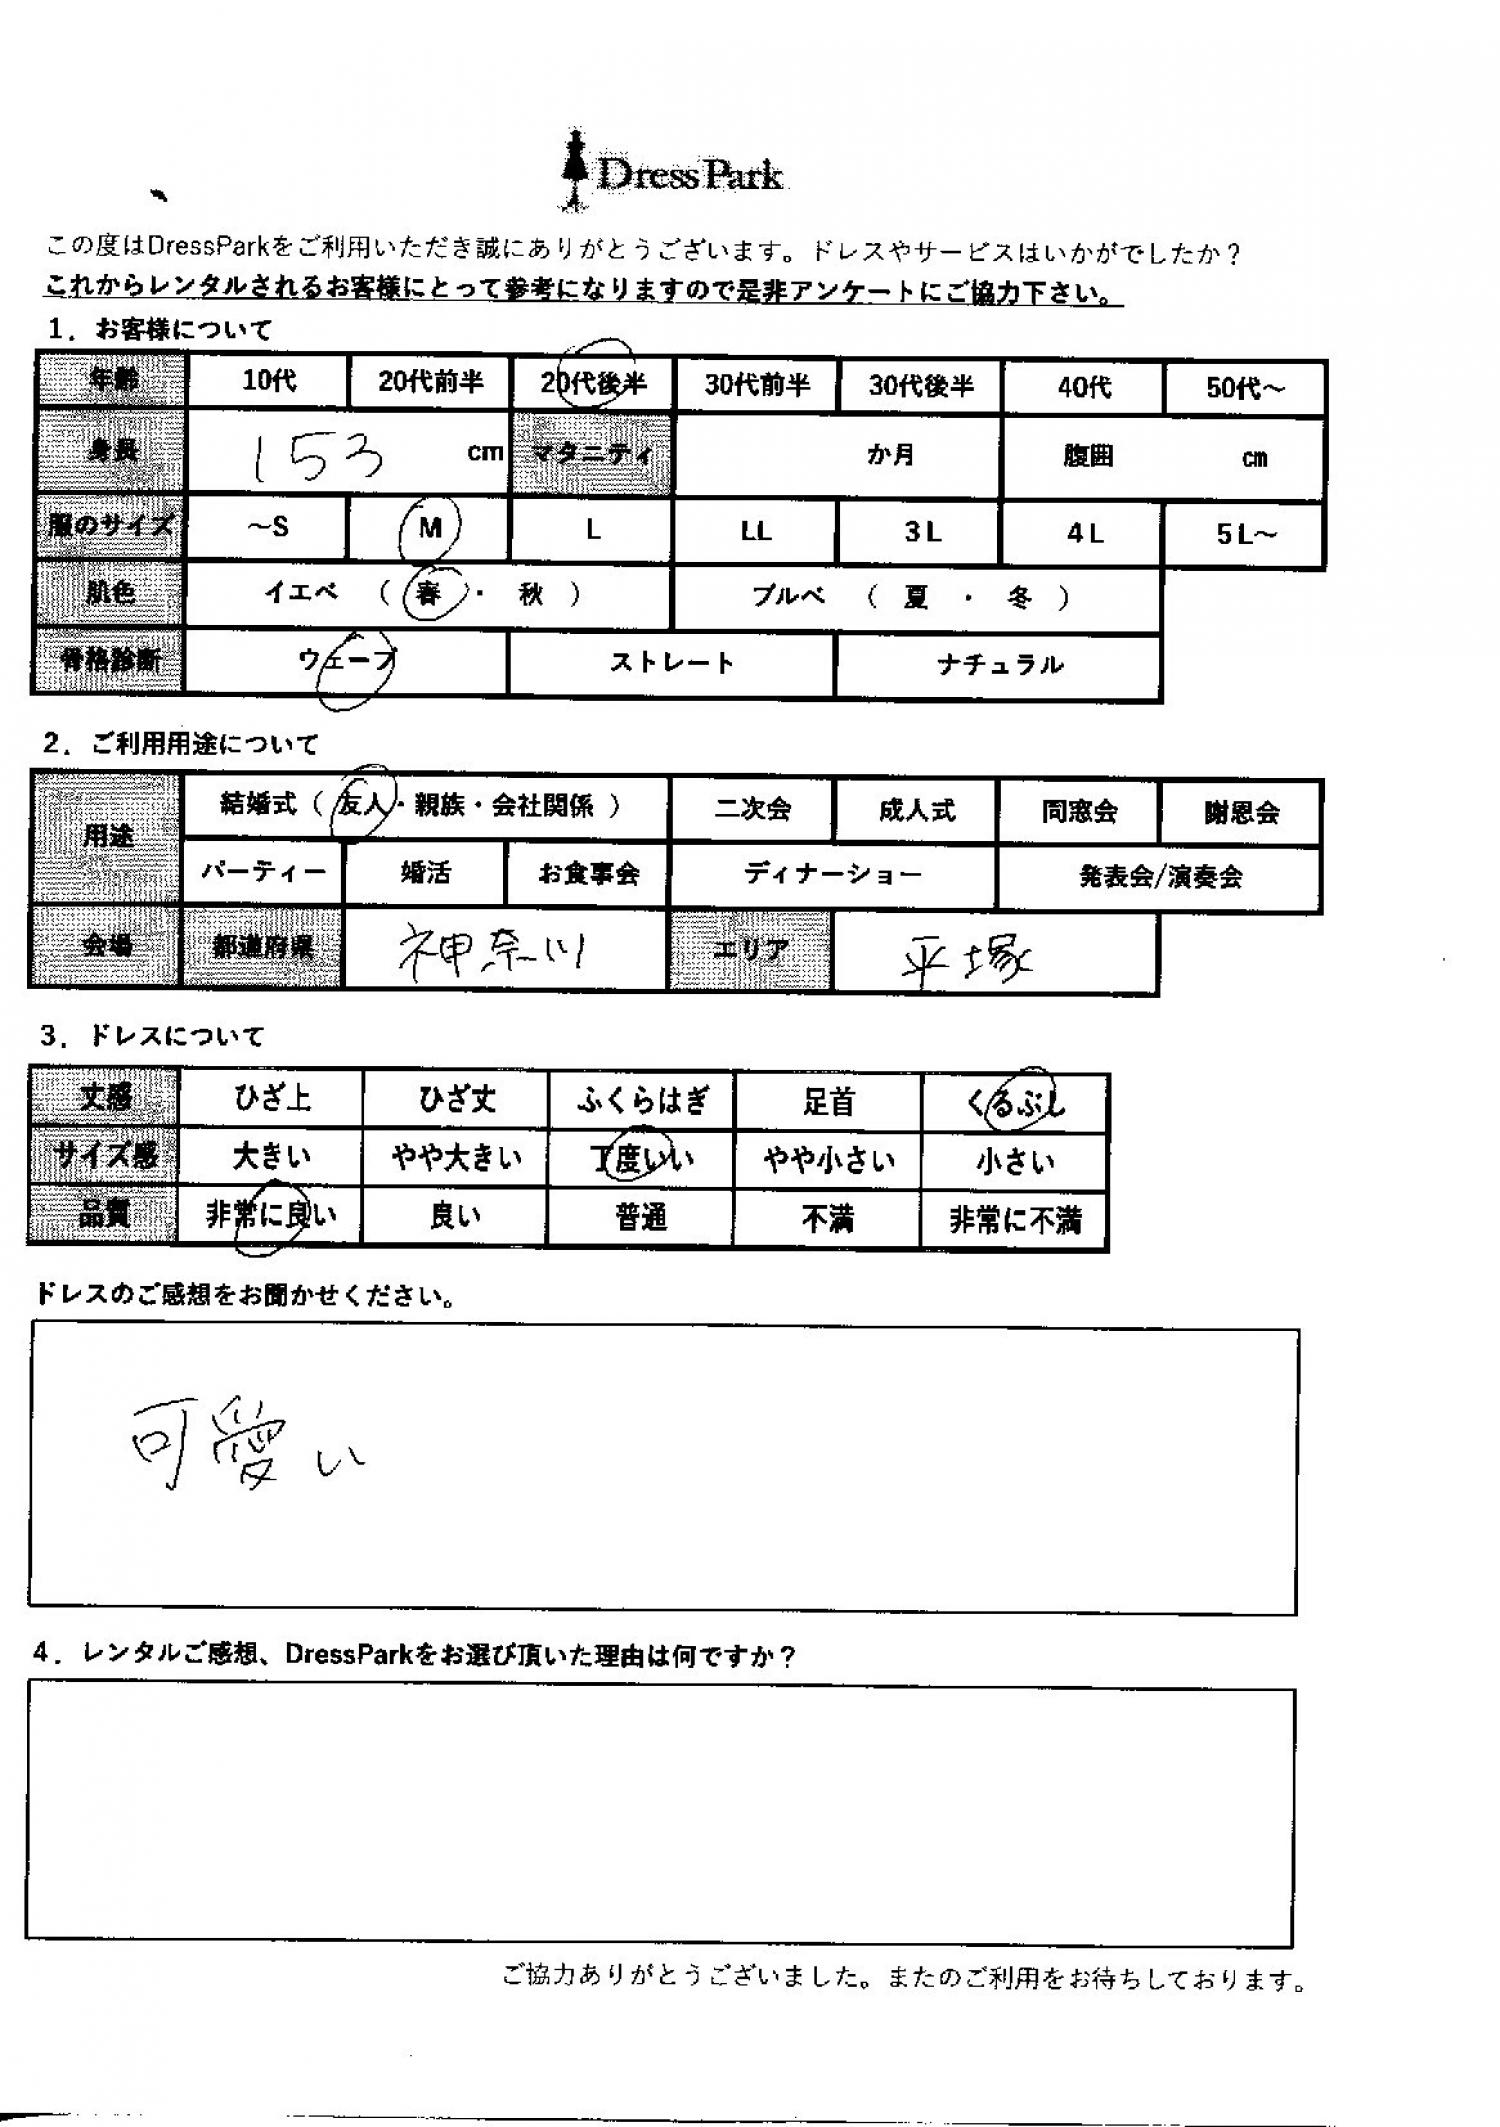 DressPark
この度はDressParkをご利用いただき誠にありがとうございます。ドレスやサービスはいかがでしたか？
これからレンタルされるお客様にとって参考になりますので是非アンケートにご協力下さい。
1．お客様について
年齢 10代 20代前半 20代後半 30代前半 30代後半 40代 50代～
身長 153 cm マタニティ か月 腹囲 cm
服のサイズ ～S M L LL 3L 4L 5L～
肌色 イエベ （ 春 ・ 秋 ） ブルベ （ 夏 ・ 冬 ）
骨格診断 ウェーブ ストレート ナチュラル
2．ご利用用途について
用途 結婚式（ 友人・親族・会社関係 ） 二次会 成人式 同窓会 謝恩会
パーティー 婚活 お食事会 ディナーショー 発表会/演奏会
会場 都道府県 神奈川 エリア 平塚
3．ドレスについて
丈感 ひざ上 ひざ丈 ふくらはぎ 足首 くるぶし
サイズ感 大きい やや大きい 丁度いい やや小さい 小さい
品質 非常に良い 良い 普通 不満 非常に不満
ドレスのご感想をお聞かせください。
可愛い
4．レンタルご感想、DressParkをお選び頂いた理由は何ですか？
ご協力ありがとうございました。またのご利用をお待ちしております。